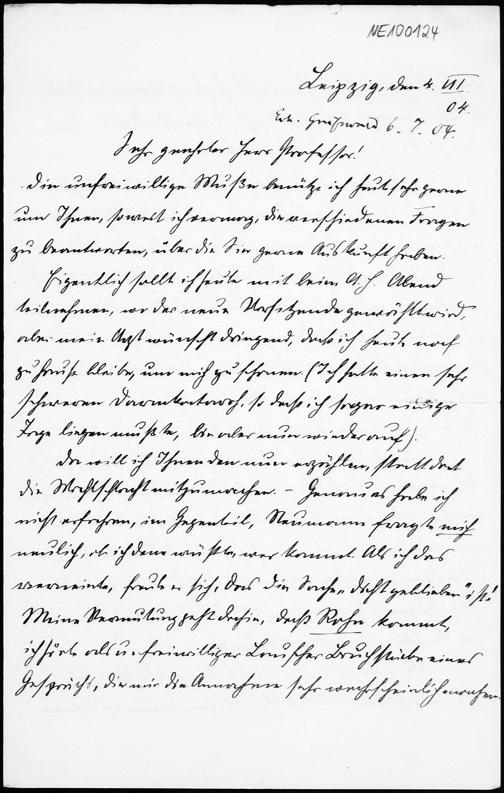 NE100124
Leipzig, den 4. VII.
04.
Erh. Greifswald 6. 7. 04.
Sehr geehrter Herr Professor!
Die unfreiwillige Muße benütze ich heut sehr gerne
um Ihnen, soweit ich vermag, die verschiedenen Fragen
zu beantworten, über die Sie gerne Auskunft haben.
Eigentlich sollte ich heute mit beim A. H. Abend
teilnehmen, wo der neue Vorsitzende gewählt wird,
aber mein Arzt wünscht dringend, daß ich heute noch
zu Hause bleibe, um mich zu schonen. (Ich hatte einen sehr
schweren Darmkatarrh, so daß ich sogar einige
Tage liegen mußte, bin aber nun wieder auf).
Da will ich Ihnen denn nun erzählen, statt dort
die Wahlschlacht mitzumachen. – Genaues habe ich
nicht erfahren, im Gegenteil, Neumann fragte mich
neulich, ob ich denn wüßte, wer kommt. Als ich das
verneinte, freute er sich, daß die Sache „dicht geblieben" ist!
Meine Vermutung geht dahin, daß Rohn kommt,
ich hörte als unfreiwilliger Lauscher Bruchstücke eines
Gesprächs, die mir die Annahme sehr wahrscheinlich machen.